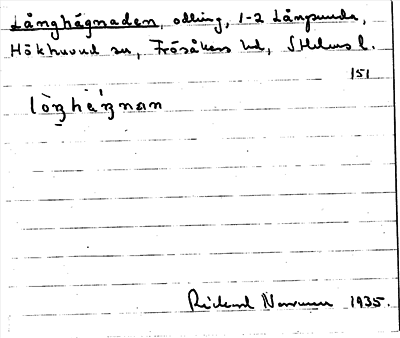 Långhägnaden, odling, 1-2 Långsunda,
Hökhuvud sn, Frösåkers hd, Sthlms l.
151
lòŋhè̩ŋnan
Rickard Norman 1935.